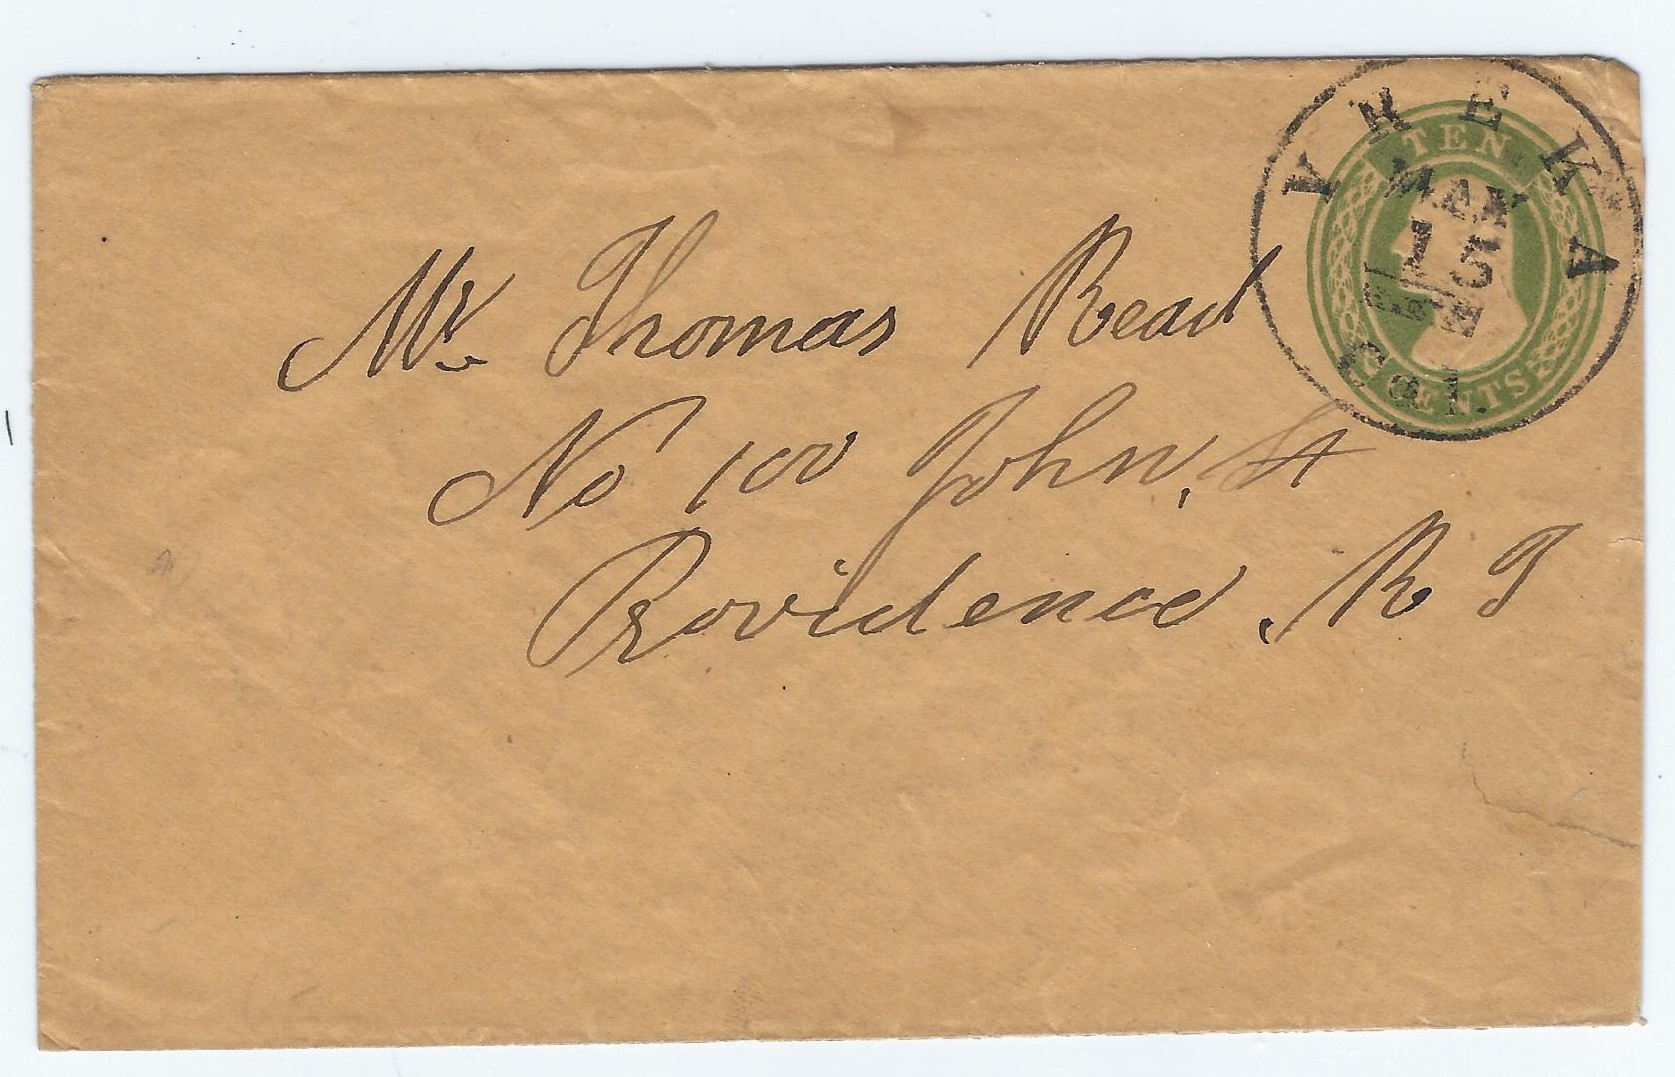 YREKA
TEN
MAY
15
Cal.
CENTS
Mr Thomas Read
No 100 John, St
Providence, R I